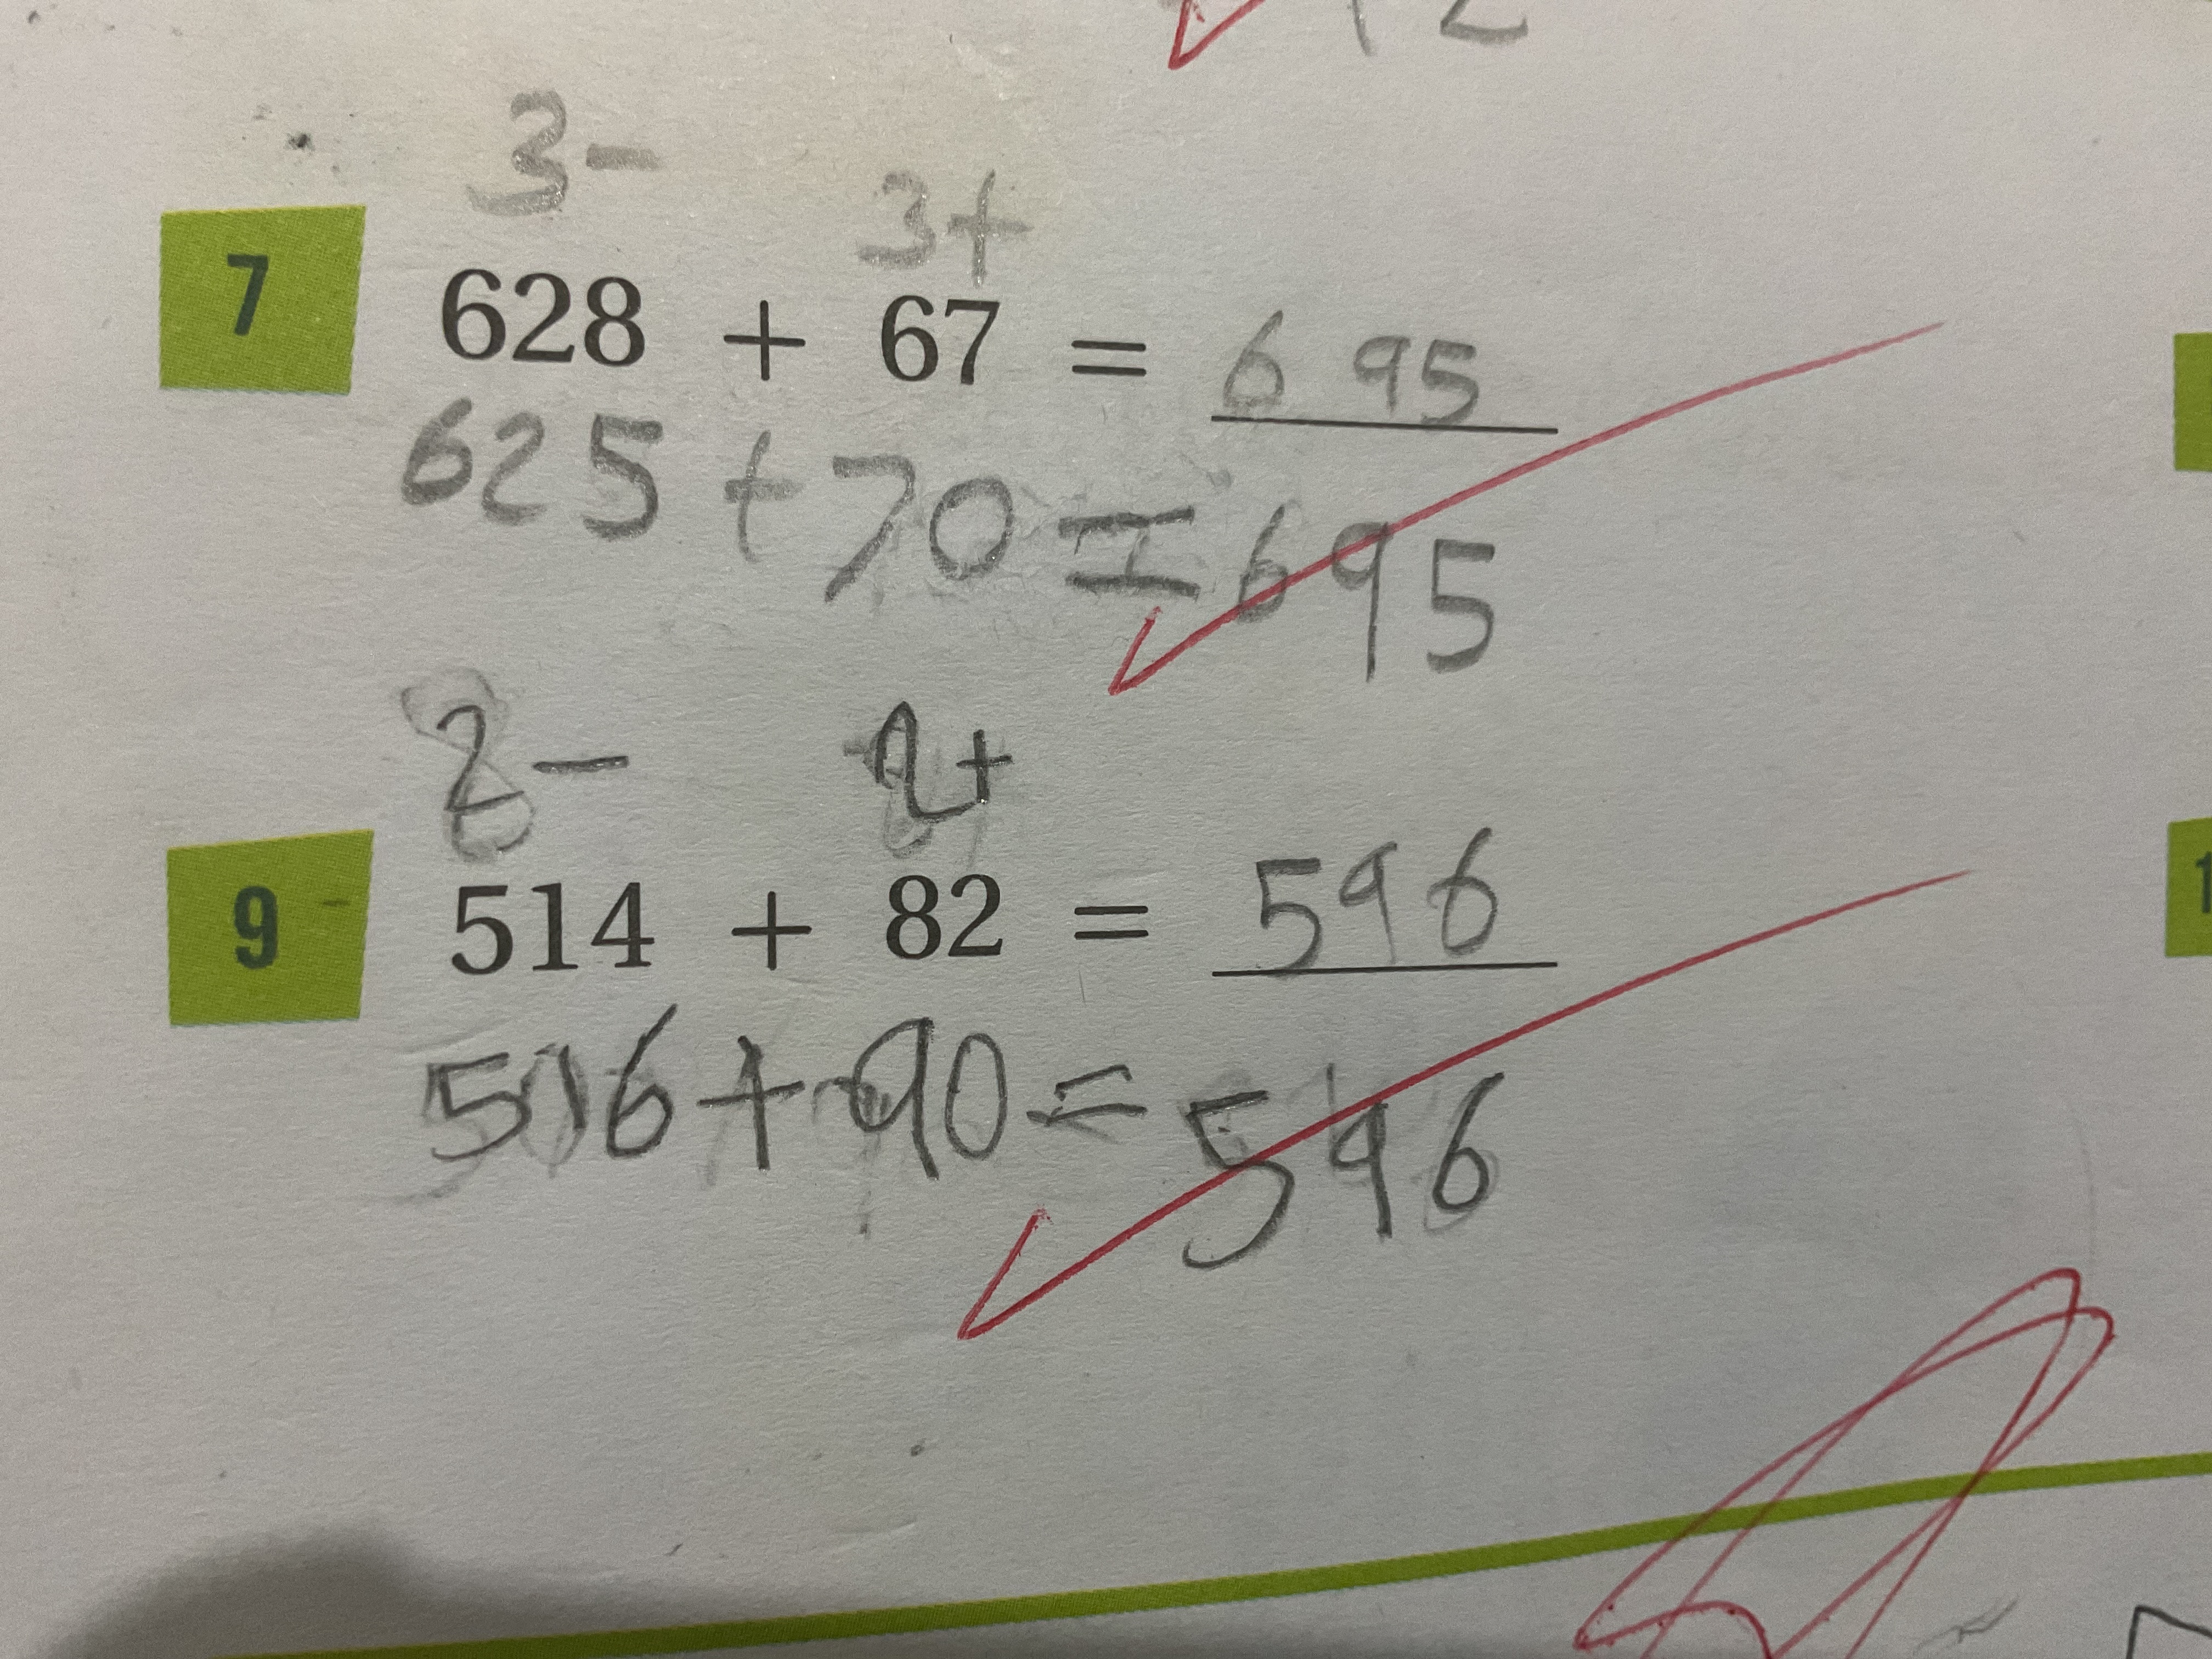 12
3- 3+
7 628 + 67 = 695
625 + 70 = 695
2- 2+
9 514 + 82 = 596
506 + 90 = 596
1